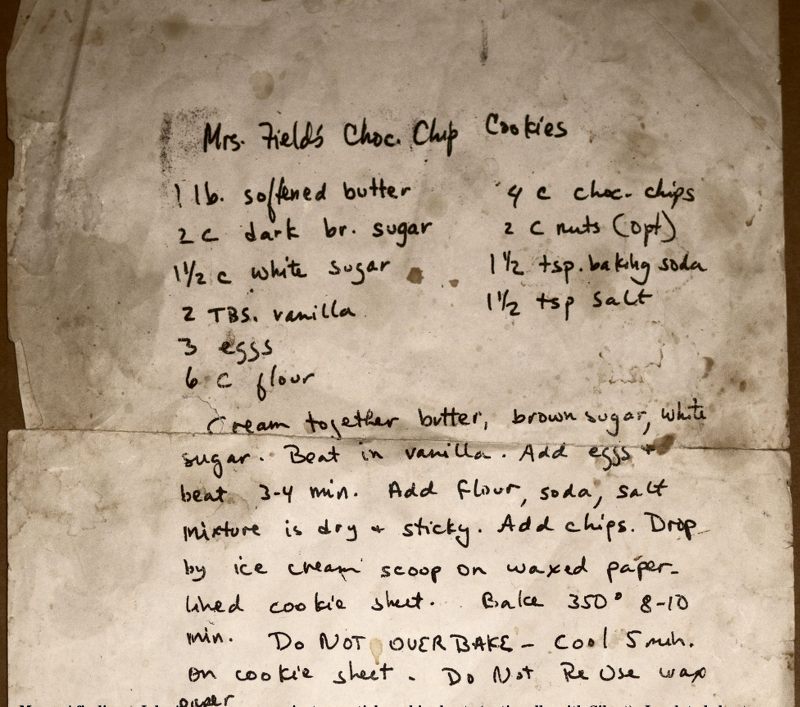 Mrs. Field's Choc. Chip Cookies
1 lb. softened butter
2 c dark br. sugar
1 1/2 c white sugar
2 TBS. vanilla
3 eggs
6 c flour
4 c choc. chips
2 c nuts (opt)
1 1/2 tsp. baking soda
1 1/2 tsp salt
Cream together butter, brown sugar, white
sugar. Beat in vanilla. Add eggs +
beat 3-4 min. Add flour, soda, salt
mixture is dry + sticky. Add chips. Drop
by ice cream scoop on waxed paper-
lined cookie sheet. Bake 350° 8-10
min. Do NOT OVERBAKE - Cool 5 min.
on cookie sheet. Do Not Re Use wax
paper